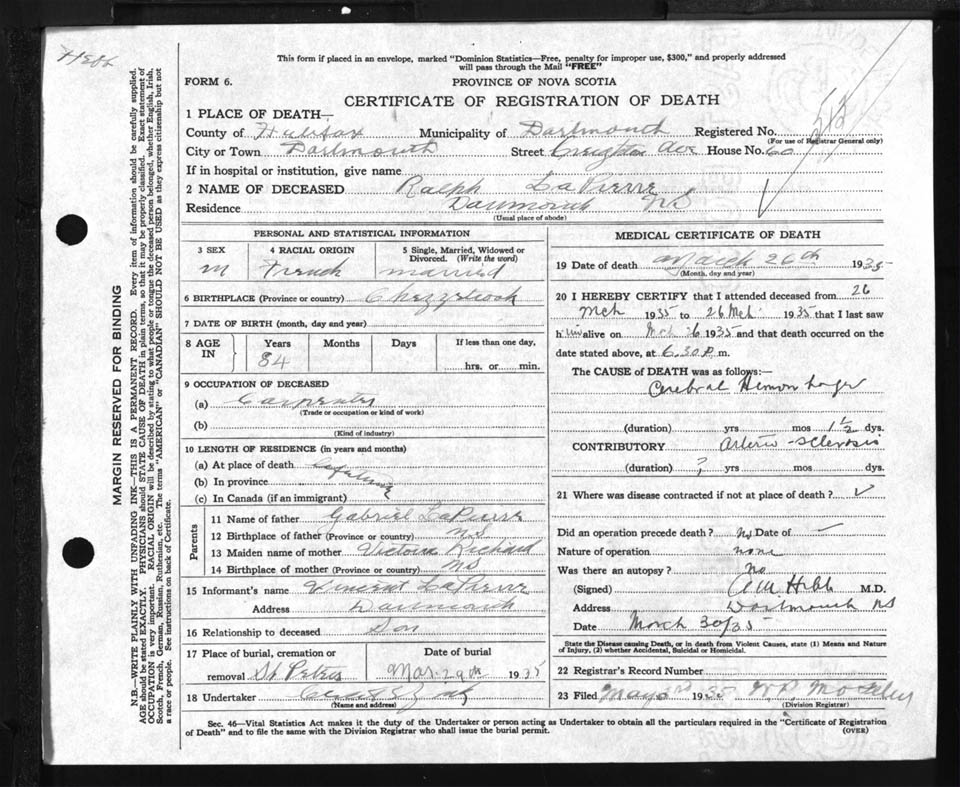 This form if placed in an envelope, marked "Dominion Statistics—Free, penalty for improper use, $300," and properly addressed
will pass through the Mail "FREE"
FORM 6.
PROVINCE OF NOVA SCOTIA
CERTIFICATE OF REGISTRATION OF DEATH
MARGIN RESERVED FOR BINDING
N.B.—WRITE PLAINLY WITH UNFADING INK—THIS IS A PERMANENT RECORD. Every item of information should be carefully supplied.
AGE should be stated EXACTLY. PHYSICIANS should STATE CAUSE OF DEATH in plain terms, so that it may be properly classified. Exact statement of
OCCUPATION is very important. RACIAL ORIGIN will be described by stating to what people or tongue the deceased person belonged, whether English, Irish,
Scotch, French, German, Russian, Ruthenian, etc. The terms "AMERICAN" or "CANADIAN" SHOULD NOT BE USED as they express citizenship but not
a race or people. See instructions on back of Certificate.
1 PLACE OF DEATH—
County of Halifax Municipality of Dartmouth Registered No.
(For use of Registrar General only)
City or Town Dartmouth Street Creighton Ave House No. 60
If in hospital or institution, give name
2 NAME OF DECEASED Ralph LaPierre
Residence Dartmouth NS
(Usual place of abode)
PERSONAL AND STATISTICAL INFORMATION
3 SEX
M
4 RACIAL ORIGIN
French
5 Single, Married, Widowed or
Divorced. (Write the word)
married
6 BIRTHPLACE (Province or country) Chezzetcook
7 DATE OF BIRTH (month, day and year)
8 AGE
IN
Years
84
Months
Days
If less than one day,
hrs. or min.
9 OCCUPATION OF DECEASED
(a) Carpenter
(Trade or occupation or kind of work)
(b)
(Kind of industry)
10 LENGTH OF RESIDENCE (in years and months)
(a) At place of death Lifetime
(b) In province
(c) In Canada (if an immigrant)
Parents
11 Name of father Gabriel LaPierre
12 Birthplace of father (Province or country) NS
13 Maiden name of mother Victoria Richard
14 Birthplace of mother (Province or country) NS
15 Informant's name Vincent LaPierre
Address Dartmouth
16 Relationship to deceased Son
17 Place of burial, cremation or
removal St Peters
Date of burial
Mar. 29th 1935
18 Undertaker
(Name and address)
MEDICAL CERTIFICATE OF DEATH
19 Date of death March 26th 1935
(Month, day and year)
20 I HEREBY CERTIFY that I attended deceased from 26
Mch 1935 to 26 Mch 1935 that I last saw
him alive on Mch 26 1935 and that death occurred on
date stated above, at 6.30 P. m.
The CAUSE of DEATH was as follows:—
Cerebral Hemorrhage
(duration) yrs mos 1½ dys.
CONTRIBUTORY Arterio-sclerosis
(duration) ? yrs mos dys.
21 Where was disease contracted if not at place of death?
Did an operation precede death? No Date of —
Nature of operation none
Was there an autopsy? No
(Signed) M.D.
Address Dartmouth NS
Date March 30/35
State the Disease causing Death, or in death from Violent Causes, state (1) Means and Nature
of Injury, (2) whether Accidental, Suicidal or Homicidal.
22 Registrar's Record Number
23 Filed 19
(Division Registrar)
Sec. 46—Vital Statistics Act makes it the duty of the Undertaker or person acting as Undertaker to obtain all the particulars required in the "Certificate of Registration
of Death" and to file the same with the Division Registrar who shall issue the burial permit.
(OVER)